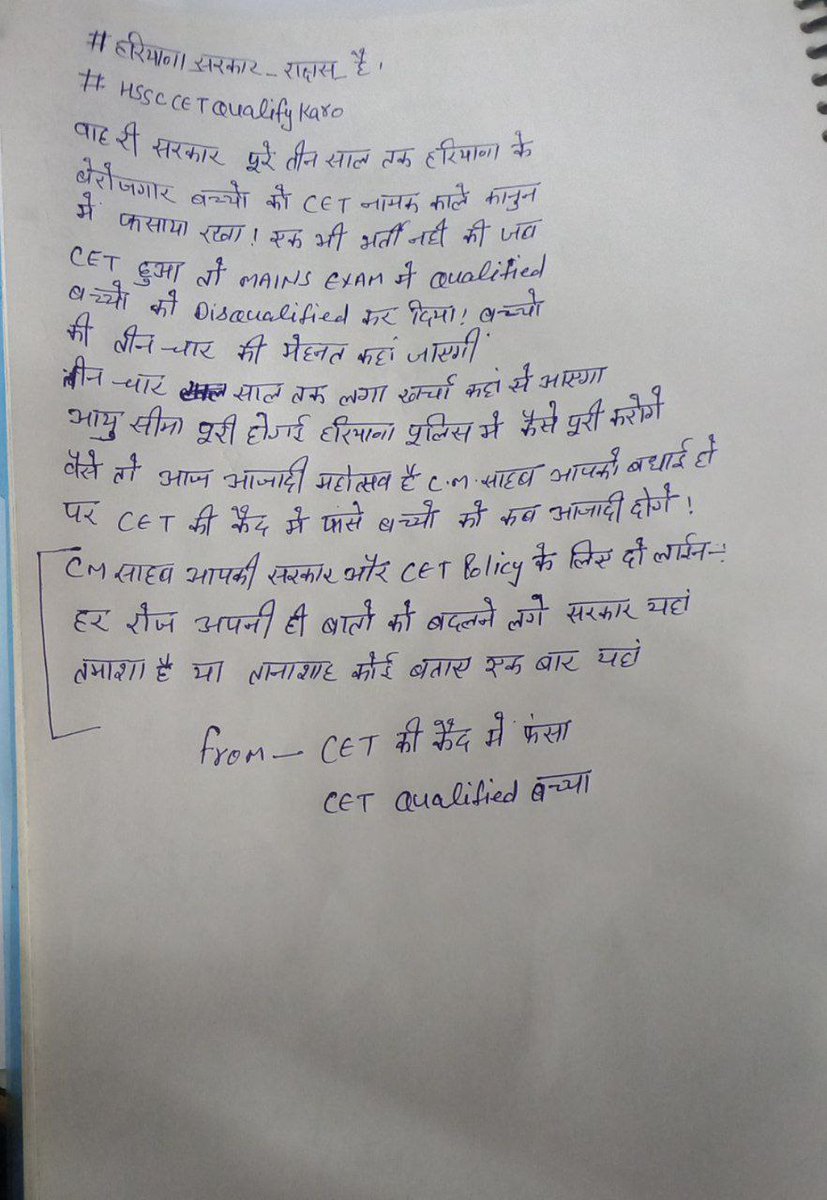 #हरियाणा_सरकार_राक्षस_है।
# HSSCCETQualifyKaro
वाह री सरकार पूरे तीन साल तक हरियाणा के
बेरोजगार बच्चो को CET नामक काले कानुन
में फसाया रखा! एक भी भर्ती नही की जब
CET हुआ तो MAINS EXAM मे Qualified
बच्चो को Disqualified कर दिया! बच्चो
की तीन-चार की मेहनत कहां जाएगीं
तीन-चार साल तक लगा खर्चा कहां से आएगा
आयु सीमा पूरी होगई हरियाणा पूलिस मे कैसे पूरी करोगे
वैसे तो आज आजादी महोत्सव है C.M. साहब आपको बधाई हो
पर CET की कैद मे फंसे बच्चो को कब आजादी दोगे!
CM साहब आपकी सरकार और CET Policy के लिए दो लाईन-:
हर रोज अपनी ही बातो को बदलने लगे सरकार यहां
तमाशा है या तानाशाह कोई बताए एक बार यहां
from - CET की कैद मे फंसा
CET Qualified बच्चा